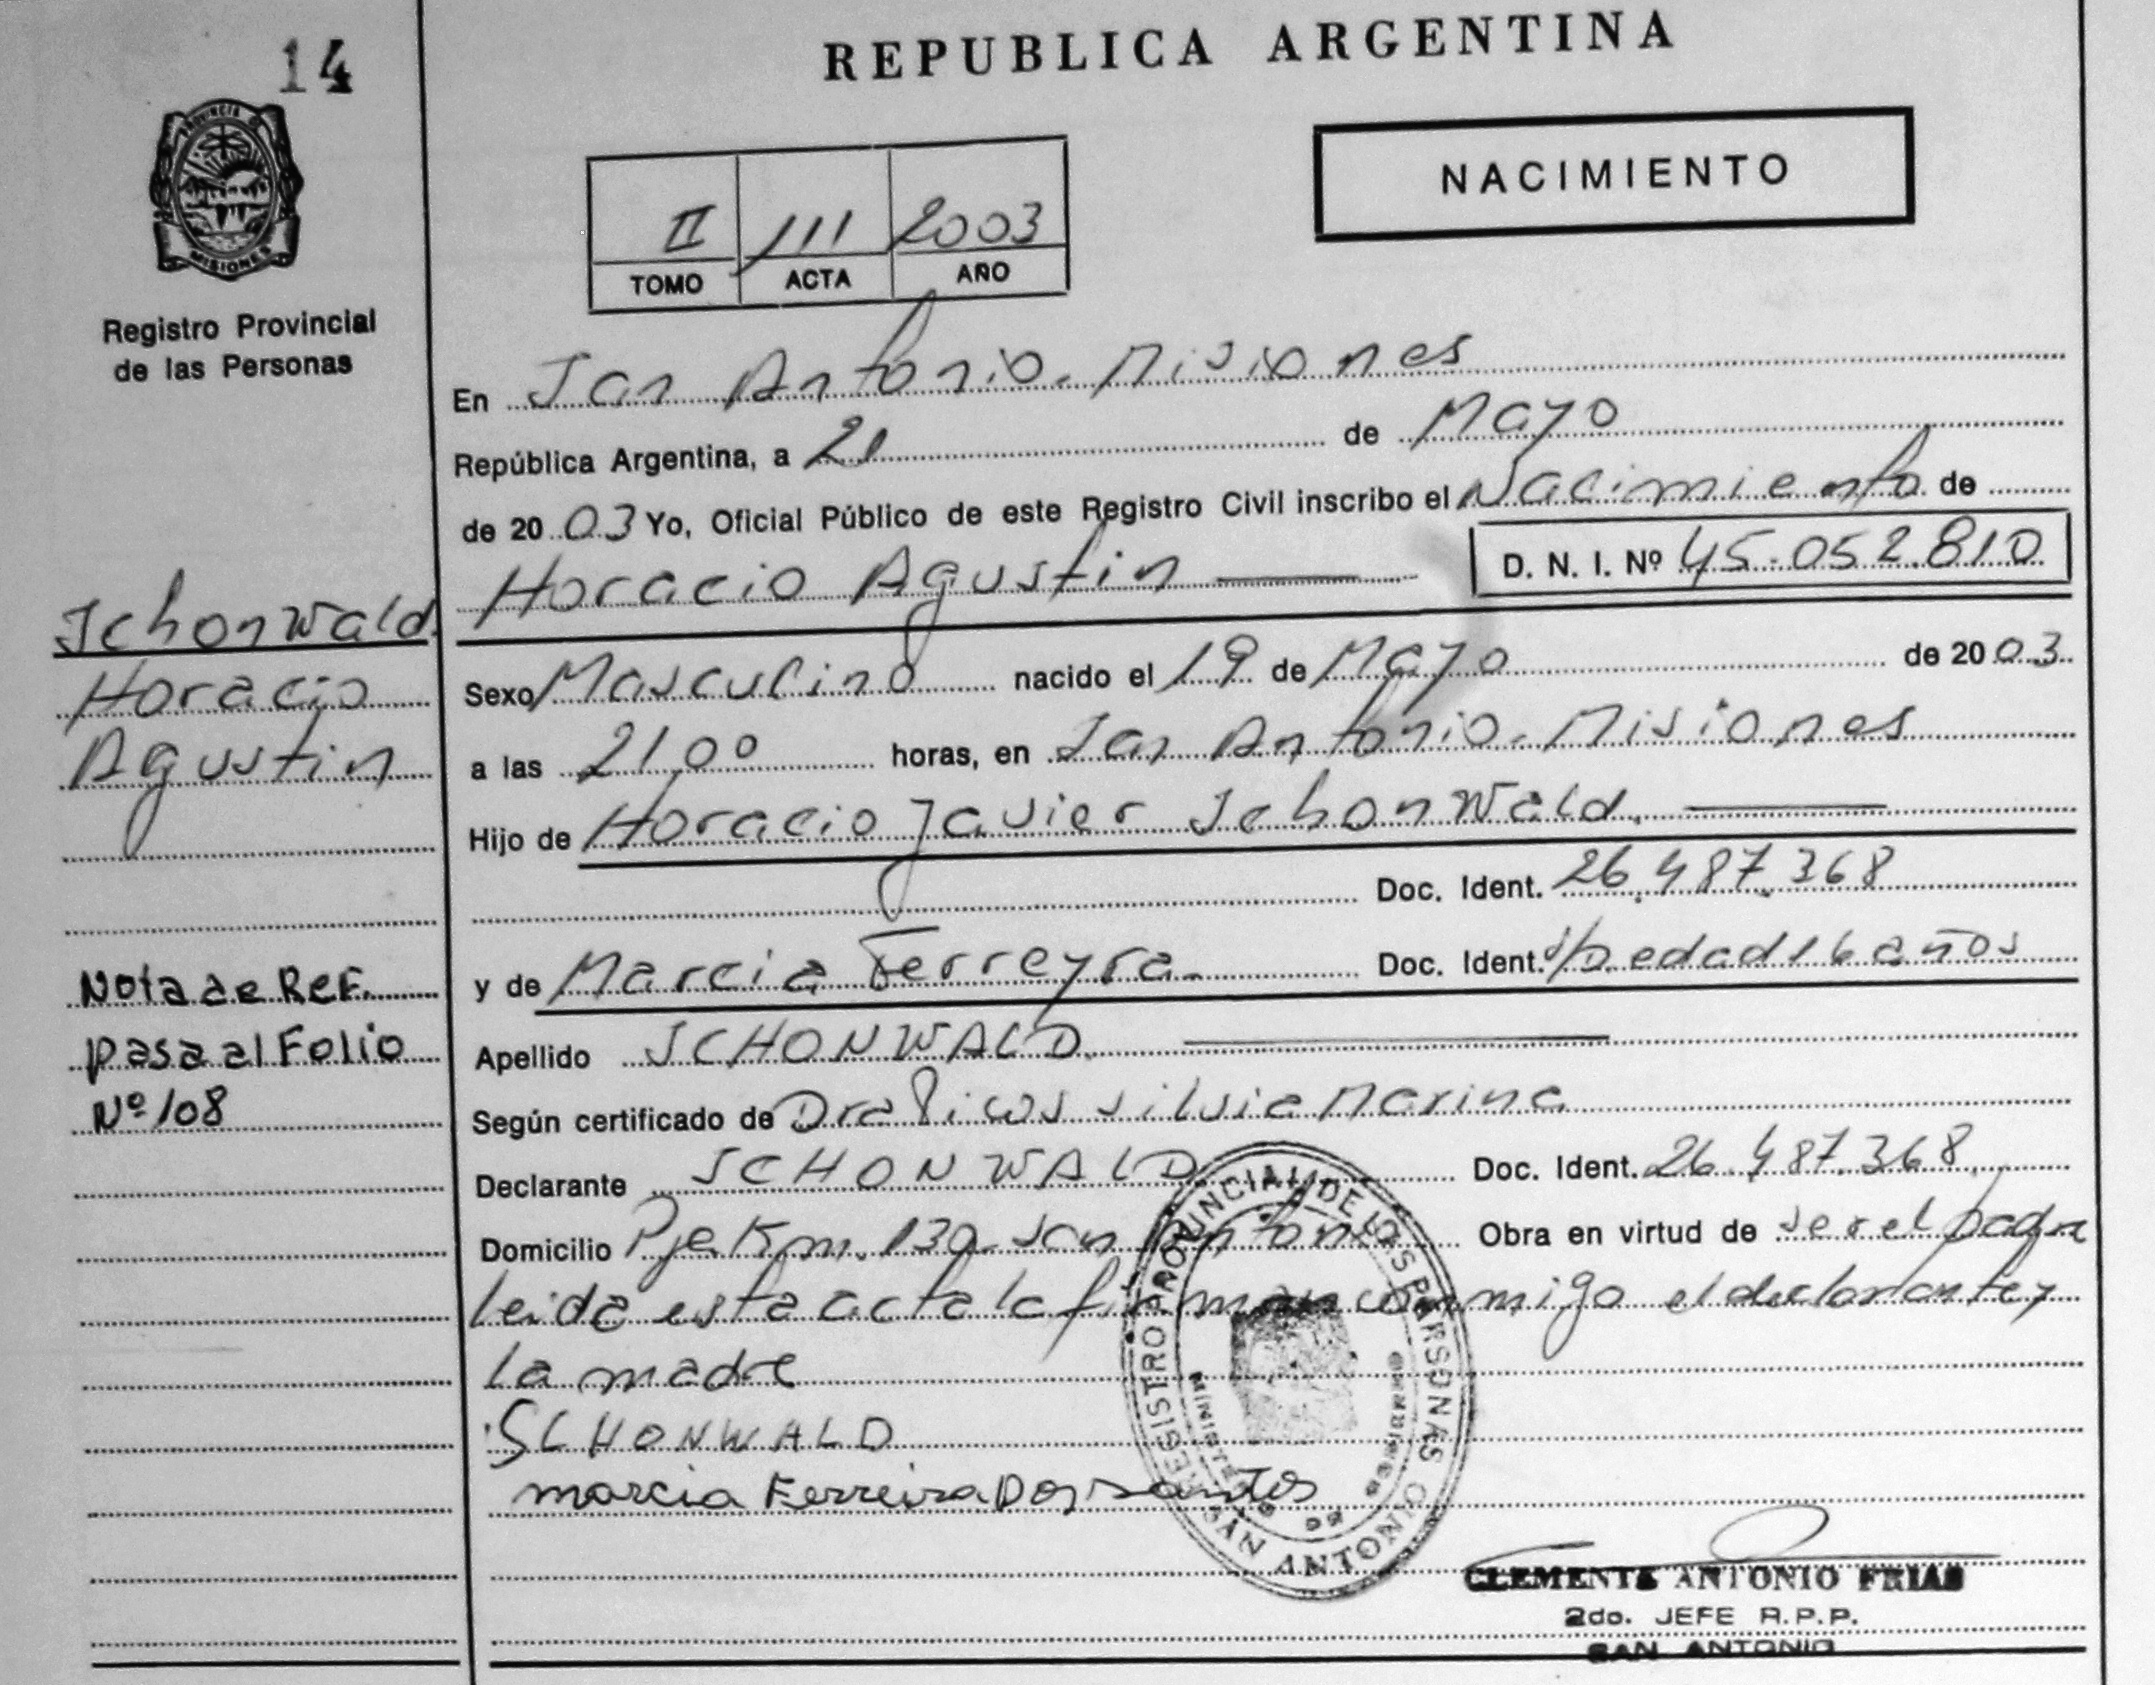 14
REPUBLICA ARGENTINA
PROVINCIA DE
MISIONES
Registro Provincial
de las Personas
NACIMIENTO
II 111 2003
TOMO ACTA AÑO
En San Antonio. Misiones
República Argentina, a 20 de Mayo
de 20 03 Yo, Oficial Público de este Registro Civil inscribo el Nacimiento de
Horacio Agustin D. N. I. Nº 45.052.810
Schonwald
Horacio
Agustin
Sexo Masculino nacido el 19 de Mayo de 20 03
a las 21,00 horas, en San Antonio. Misiones
Hijo de Horacio Javier Schonwald.
Doc. Ident. 26.487.368
y de Marcia Ferreyra. Doc. Ident. s/D. edad 16 años
Nota de Ref.
pasa al Folio
Nº 108
Apellido SCHONWALD
Según certificado de Dra Picos Silvia Marina
Declarante SCHONWALD Doc. Ident. 26.487.368
Domicilio Pje Km. 130 San Antonio Obra en virtud de ser el padre
leida esta acta la firman conmigo el declarante y
la madre
SCHONWALD
marcia Ferreira Dos santos
REGISTRO PROVINCIAL DE LAS PERSONAS
SAN ANTONIO
CLEMENTE ANTONIO FRIAS
2do. JEFE R.P.P.
SAN ANTONIO